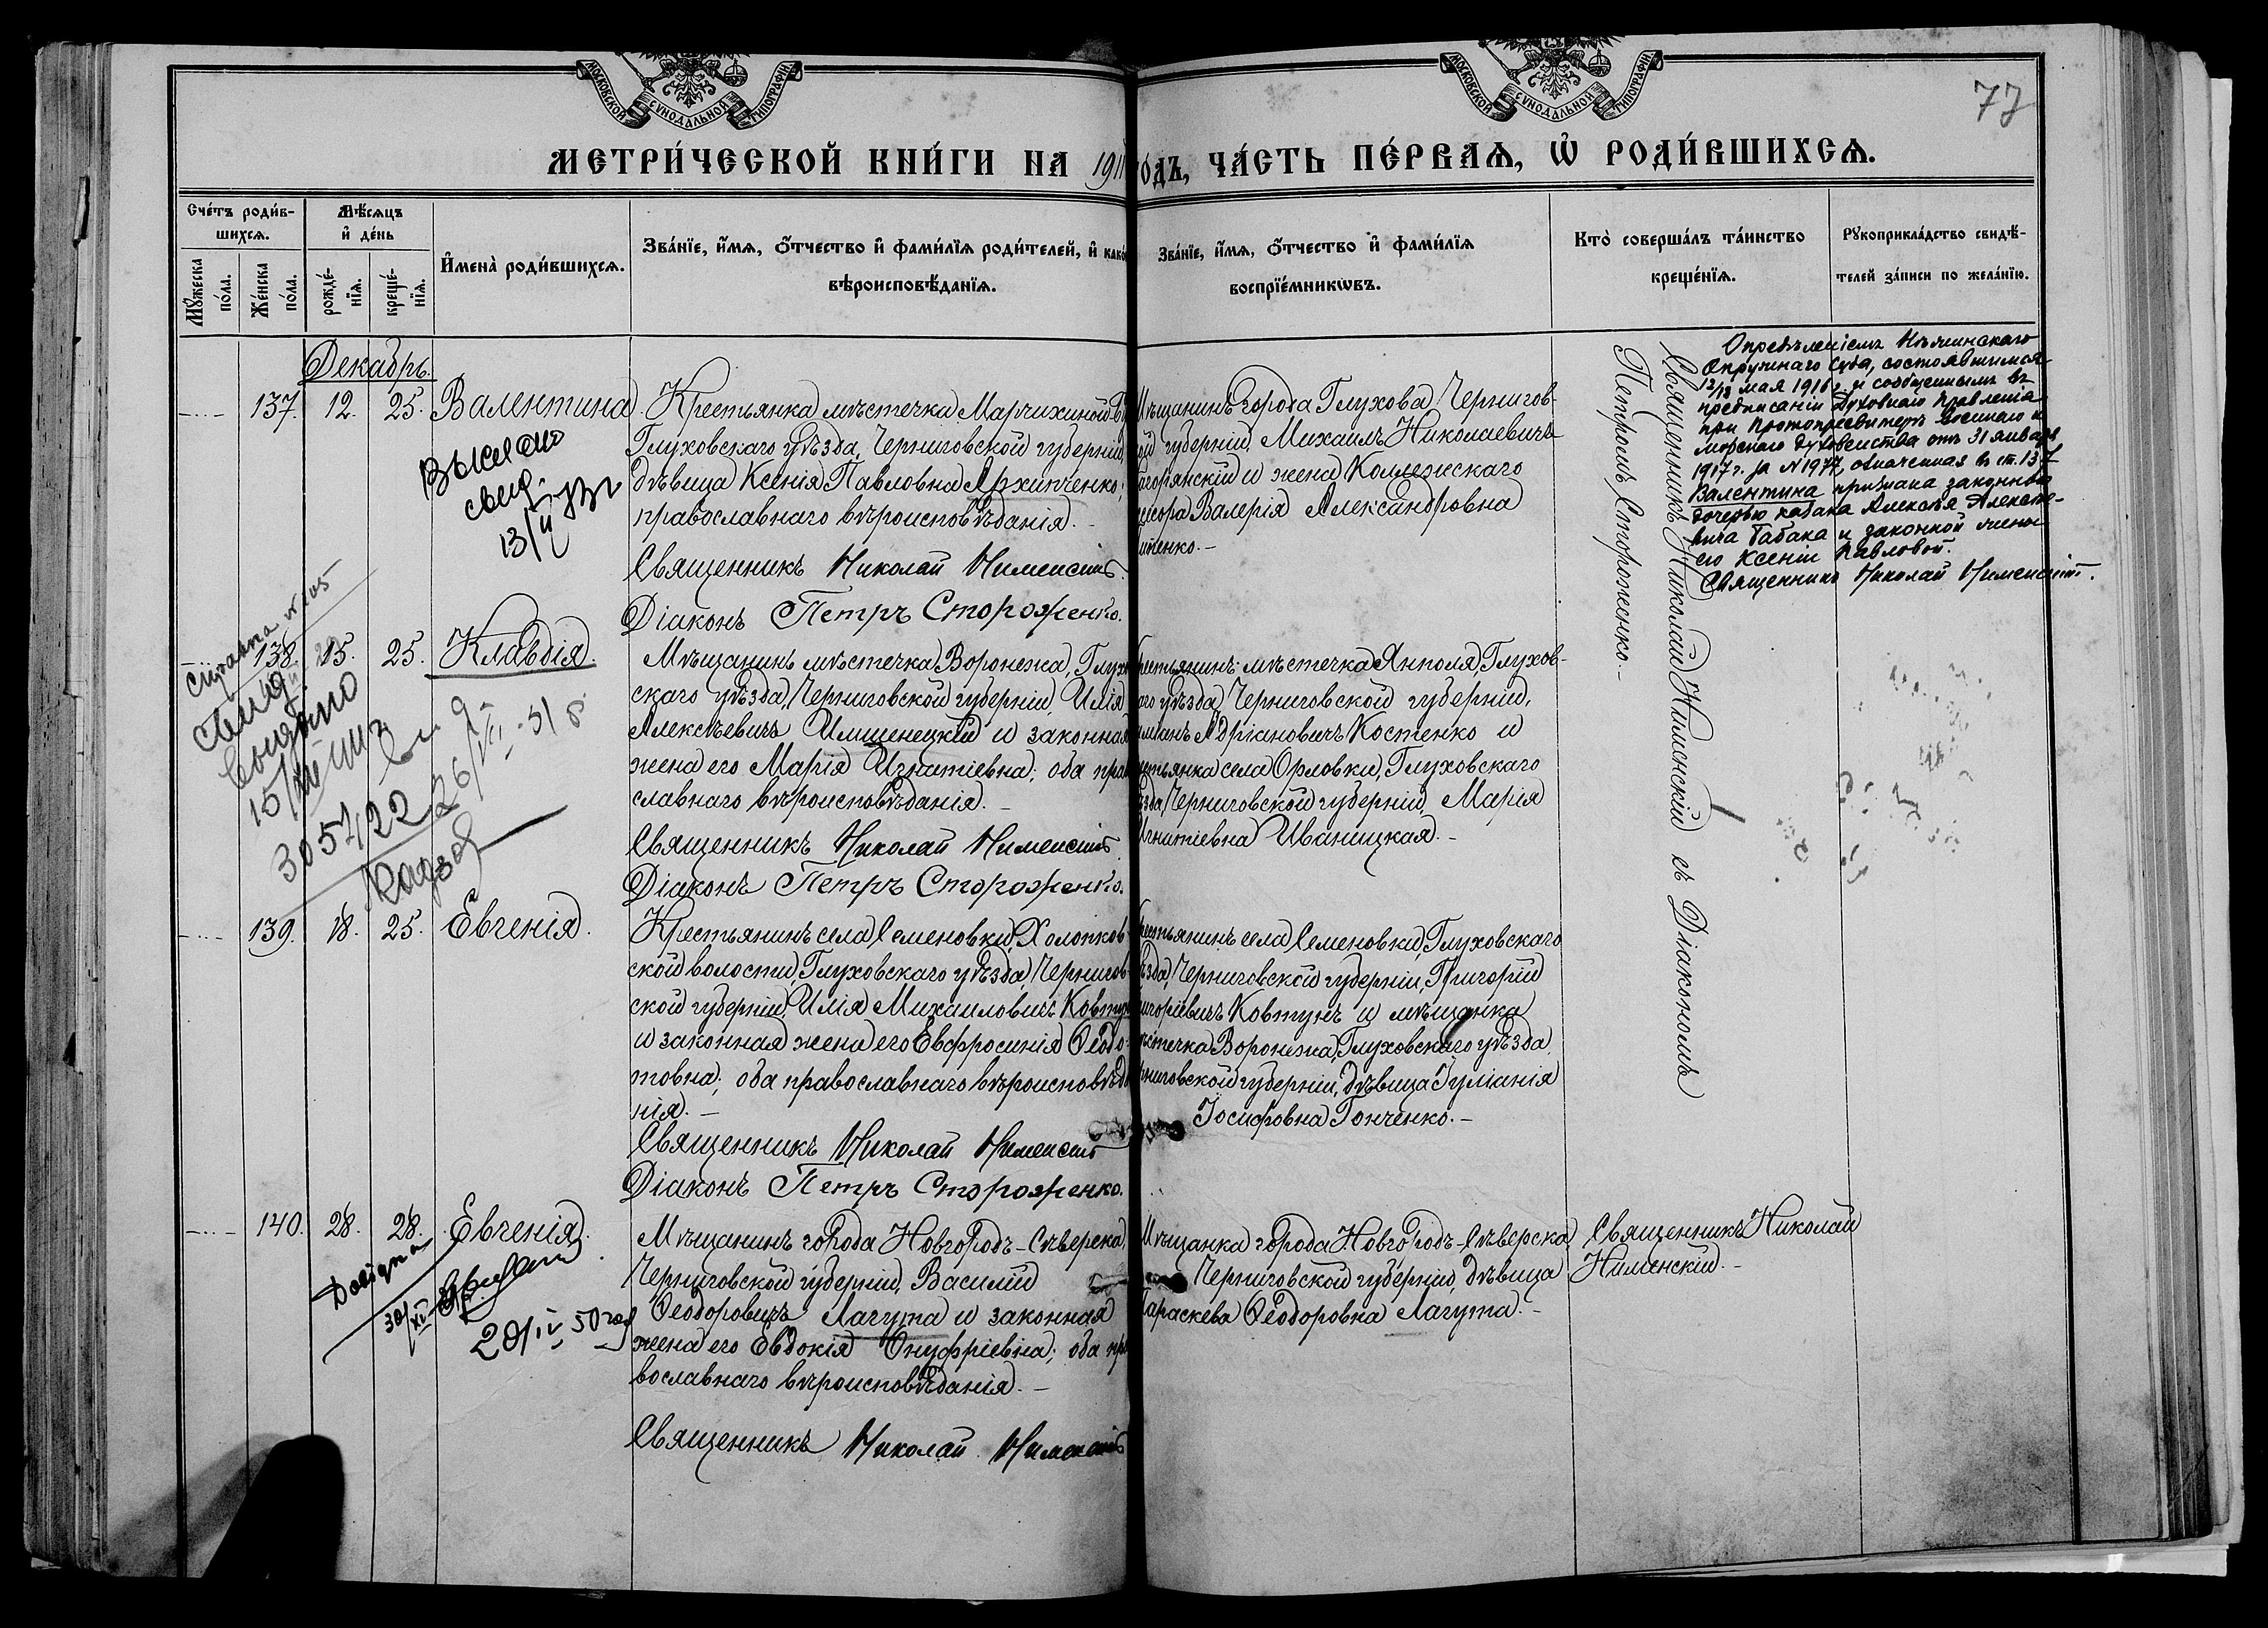 МОСКОВСКОЙ СУНОДАЛЬНОЙ ТИПОГРАФІИ.
МОСКОВСКОЙ СУНОДАЛЬНОЙ ТИПОГРАФІИ.
77
МЕТРИ́ЧЕСКОЙ КНИ́ГИ НА 1911 ГОДЪ, ЧА́СТЬ ПЕ́РВАѦ, Ѡ РОДИ́ВШИХСѦ.
Сче́тъ роди́в-
шихсѧ.
Мꙋ́жеска по́ла.
Же́нска по́ла.
Мѣ́сѧцъ
и҆ де́нь
рожде́-
нїѧ.
креще́-
нїѧ.
И҆мена̀ роди́вшихсѧ.
Зва́нїе, и҆́мѧ, ѻ҆́тчество и҆ фами́лїѧ роди́телей, и҆ како́
вѣроисповѣ́данїѧ.
Зва́нїе, и҆́мѧ, ѻ҆́тчество и҆ фами́лїѧ
воспрїе́мникѡвъ.
Кто̀ соверша́лъ та́инство
креще́нїѧ.
Рꙋкоприкла́дство свидѣ́-
телей за́писи по жела́нїю.
Декабрь.
137. 12. 25. Валентина.
Крестьянка мѣстечка Марчихиной
Глуховскаго уѣзда, Черниговской губерніи,
дѣвица Ксенія Павловна Архипченко;
православнаго вѣроисповѣданія.
Священникъ Николай Нименскій.
Діаконъ Петръ Стороженко.
Мѣщанинъ города Глухова, Чернигов-
губерніи, Михаилъ Николаевичъ
и жена Коллежскаго
Валерія Александровна
Священникъ Николай Нименскій съ Діакономъ
Петромъ Стороженко.
Опредѣленіемъ Нѣжинскаго
Окружнаго Суда, состоявшимся
12/13 мая 1916 г. и сообщеннымъ въ
предписаніи Духовнаго Правленія
при Протопресвитерѣ военнаго и
морского духовенства отъ 31 января
1917 г. за N 1977, означенная в ст. 137
Валентина признана законною
дочерью казака Алексѣя Алексѣе-
вича Табака и законной жены
его Ксеніи Павловой.
Священникъ Николай Нименскій.
Выслано
13/II
138. 15. 25. Клавдія.
Мѣщанинъ мѣстечка Воронежа, Глухов
скаго уѣзда, Черниговской губерніи, Илія
Алексѣевичъ Имшенецкій и законная
жена его Марія Игнатіевна; оба право
славнаго вѣроисповѣданія.
Священникъ Николай Нименскій.
Діаконъ Петръ Стороженко.
Крестьянинъ мѣстечка Янполя, Глухов-
скаго уѣзда, Черниговской губерніи,
Адріановичъ Костенко и
крестьянка села Орловки, Глуховскаго
уѣзда, Черниговской губерніи, Марія
Игнатіевна Иваницкая.
Справка
выдано
305422
26/VII-51
139. 18. 25. Евгенія.
Крестьянинъ села Семеновки, Холопков-
ской волости, Глуховскаго уѣзда, Чернигов-
ской губерніи, Илія Михаиловичъ Ковтунъ
и законная жена его Евфросинія Ѳеодо-
товна; оба православнаго вѣроисповѣда
нія.
Священникъ Николай Нименскій
Діаконъ Петръ Стороженко.
Крестьянинъ села Семеновки, Глуховскаго
уѣзда, Черниговской губерніи, Григорій
Григоріевичъ Ковтунъ и мѣщанка
мѣстечка Воронежа, Глуховскаго уѣзда,
Черниговской губерніи, дѣвица Іуліанія
Іосифовна Гонченко.
140. 28. 28. Евгенія.
Мѣщанинъ города Новгородъ-Сѣверска,
Черниговской губерніи, Василій
Ѳеодоровичъ Лагута и законная
жена его Евдокія Онуфріевна; оба пра
вославнаго вѣроисповѣданія.
Священникъ Николай Нименскій
Мѣщанка города Новгородъ-Сѣверска,
Черниговской губерніи, дѣвица
Параскева Ѳеодоровна Лагута.
Священникъ Николай
Нименскій.
30/XI